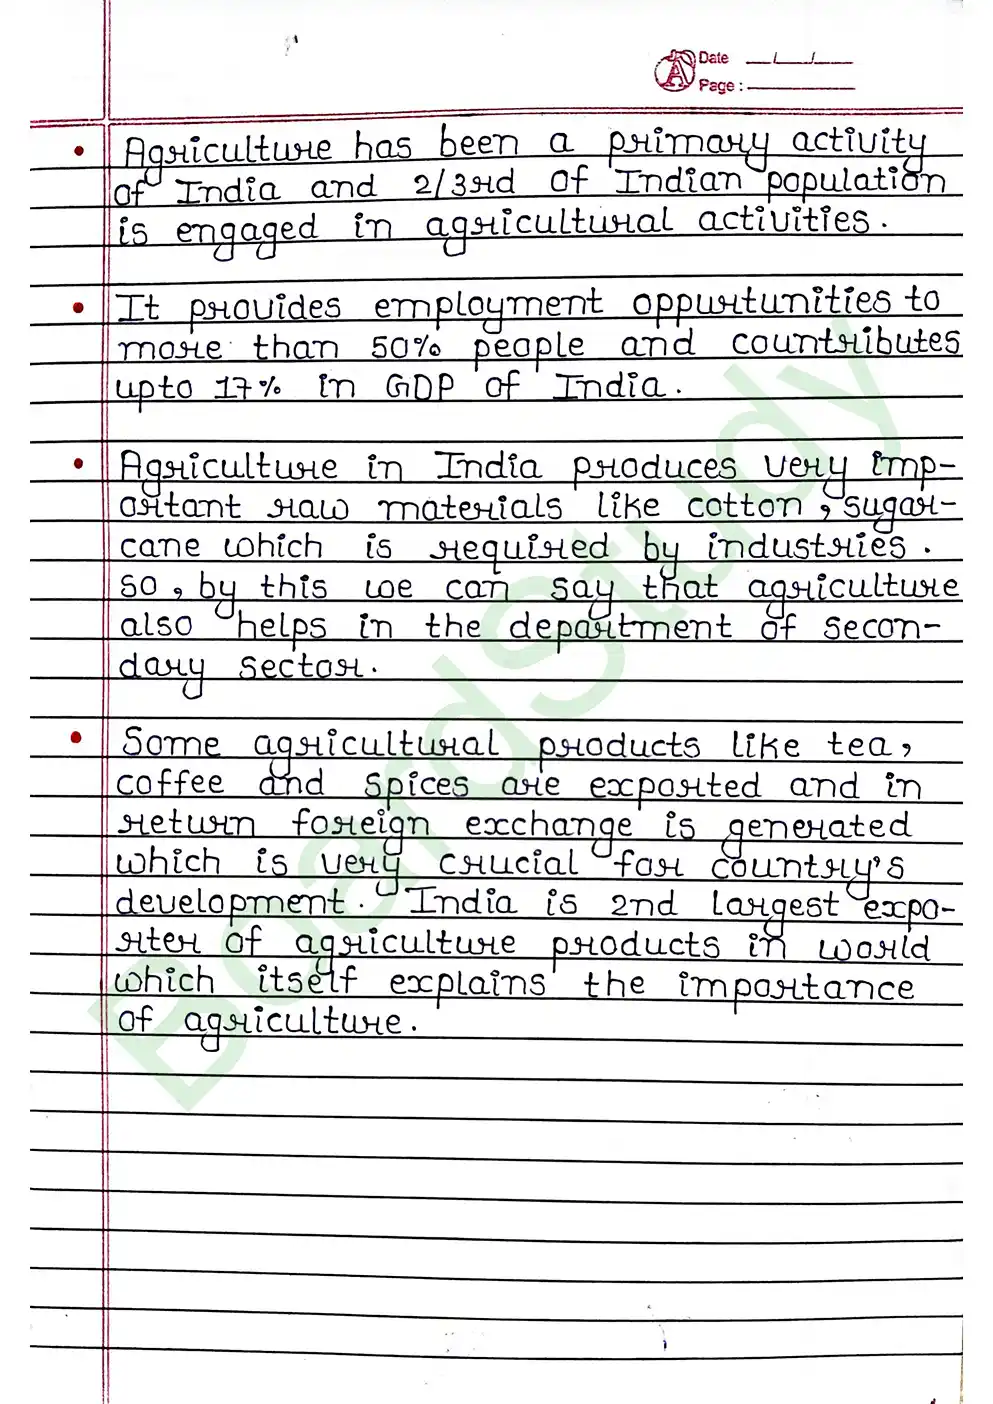 Date __/__/__
Page :
• Agriculture has been a primary activity
of India and 2/3rd of Indian population
is engaged in agricultural activities.
• It provides employment oppurtunities to
more than 50% people and countributes
upto 17% in GDP of India.
• Agriculture in India produces very imp-
ortant raw materials like cotton, sugar-
cane which is required by industries.
So, by this we can say that agriculture
also helps in the department of secon-
dary sector.
• Some agricultural products like tea,
coffee and spices are exported and in
return foreign exchange is generated
which is very crucial for country's
development. India is 2nd largest expo-
rter of agriculture products in world
which itself explains the importance
of agriculture.
BoardStudy